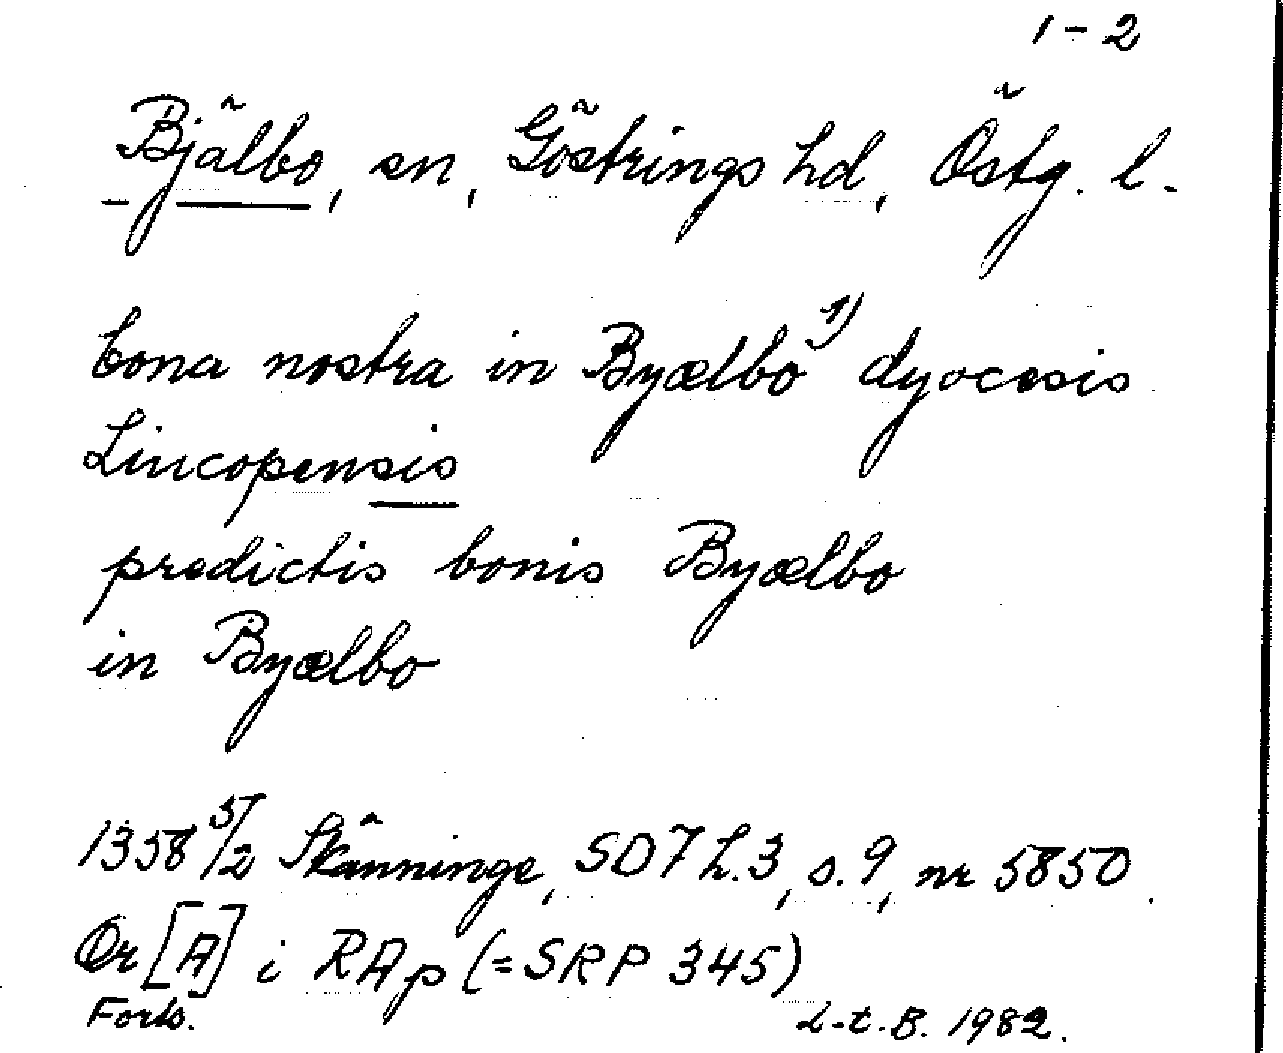 1-2
Bjälbo, sn, Göstrings hd, Östg. l.
bona nostra in Byælbo 1) dyocesis
Lincopensis
predictis bonis Byælbo
in Byælbo
1358 5/2 Skänninge, SD 7 h. 3, s. 9, nr 5850.
Or [A] i RAp (=SRP 345)
Forts. L-t. B. 1982.